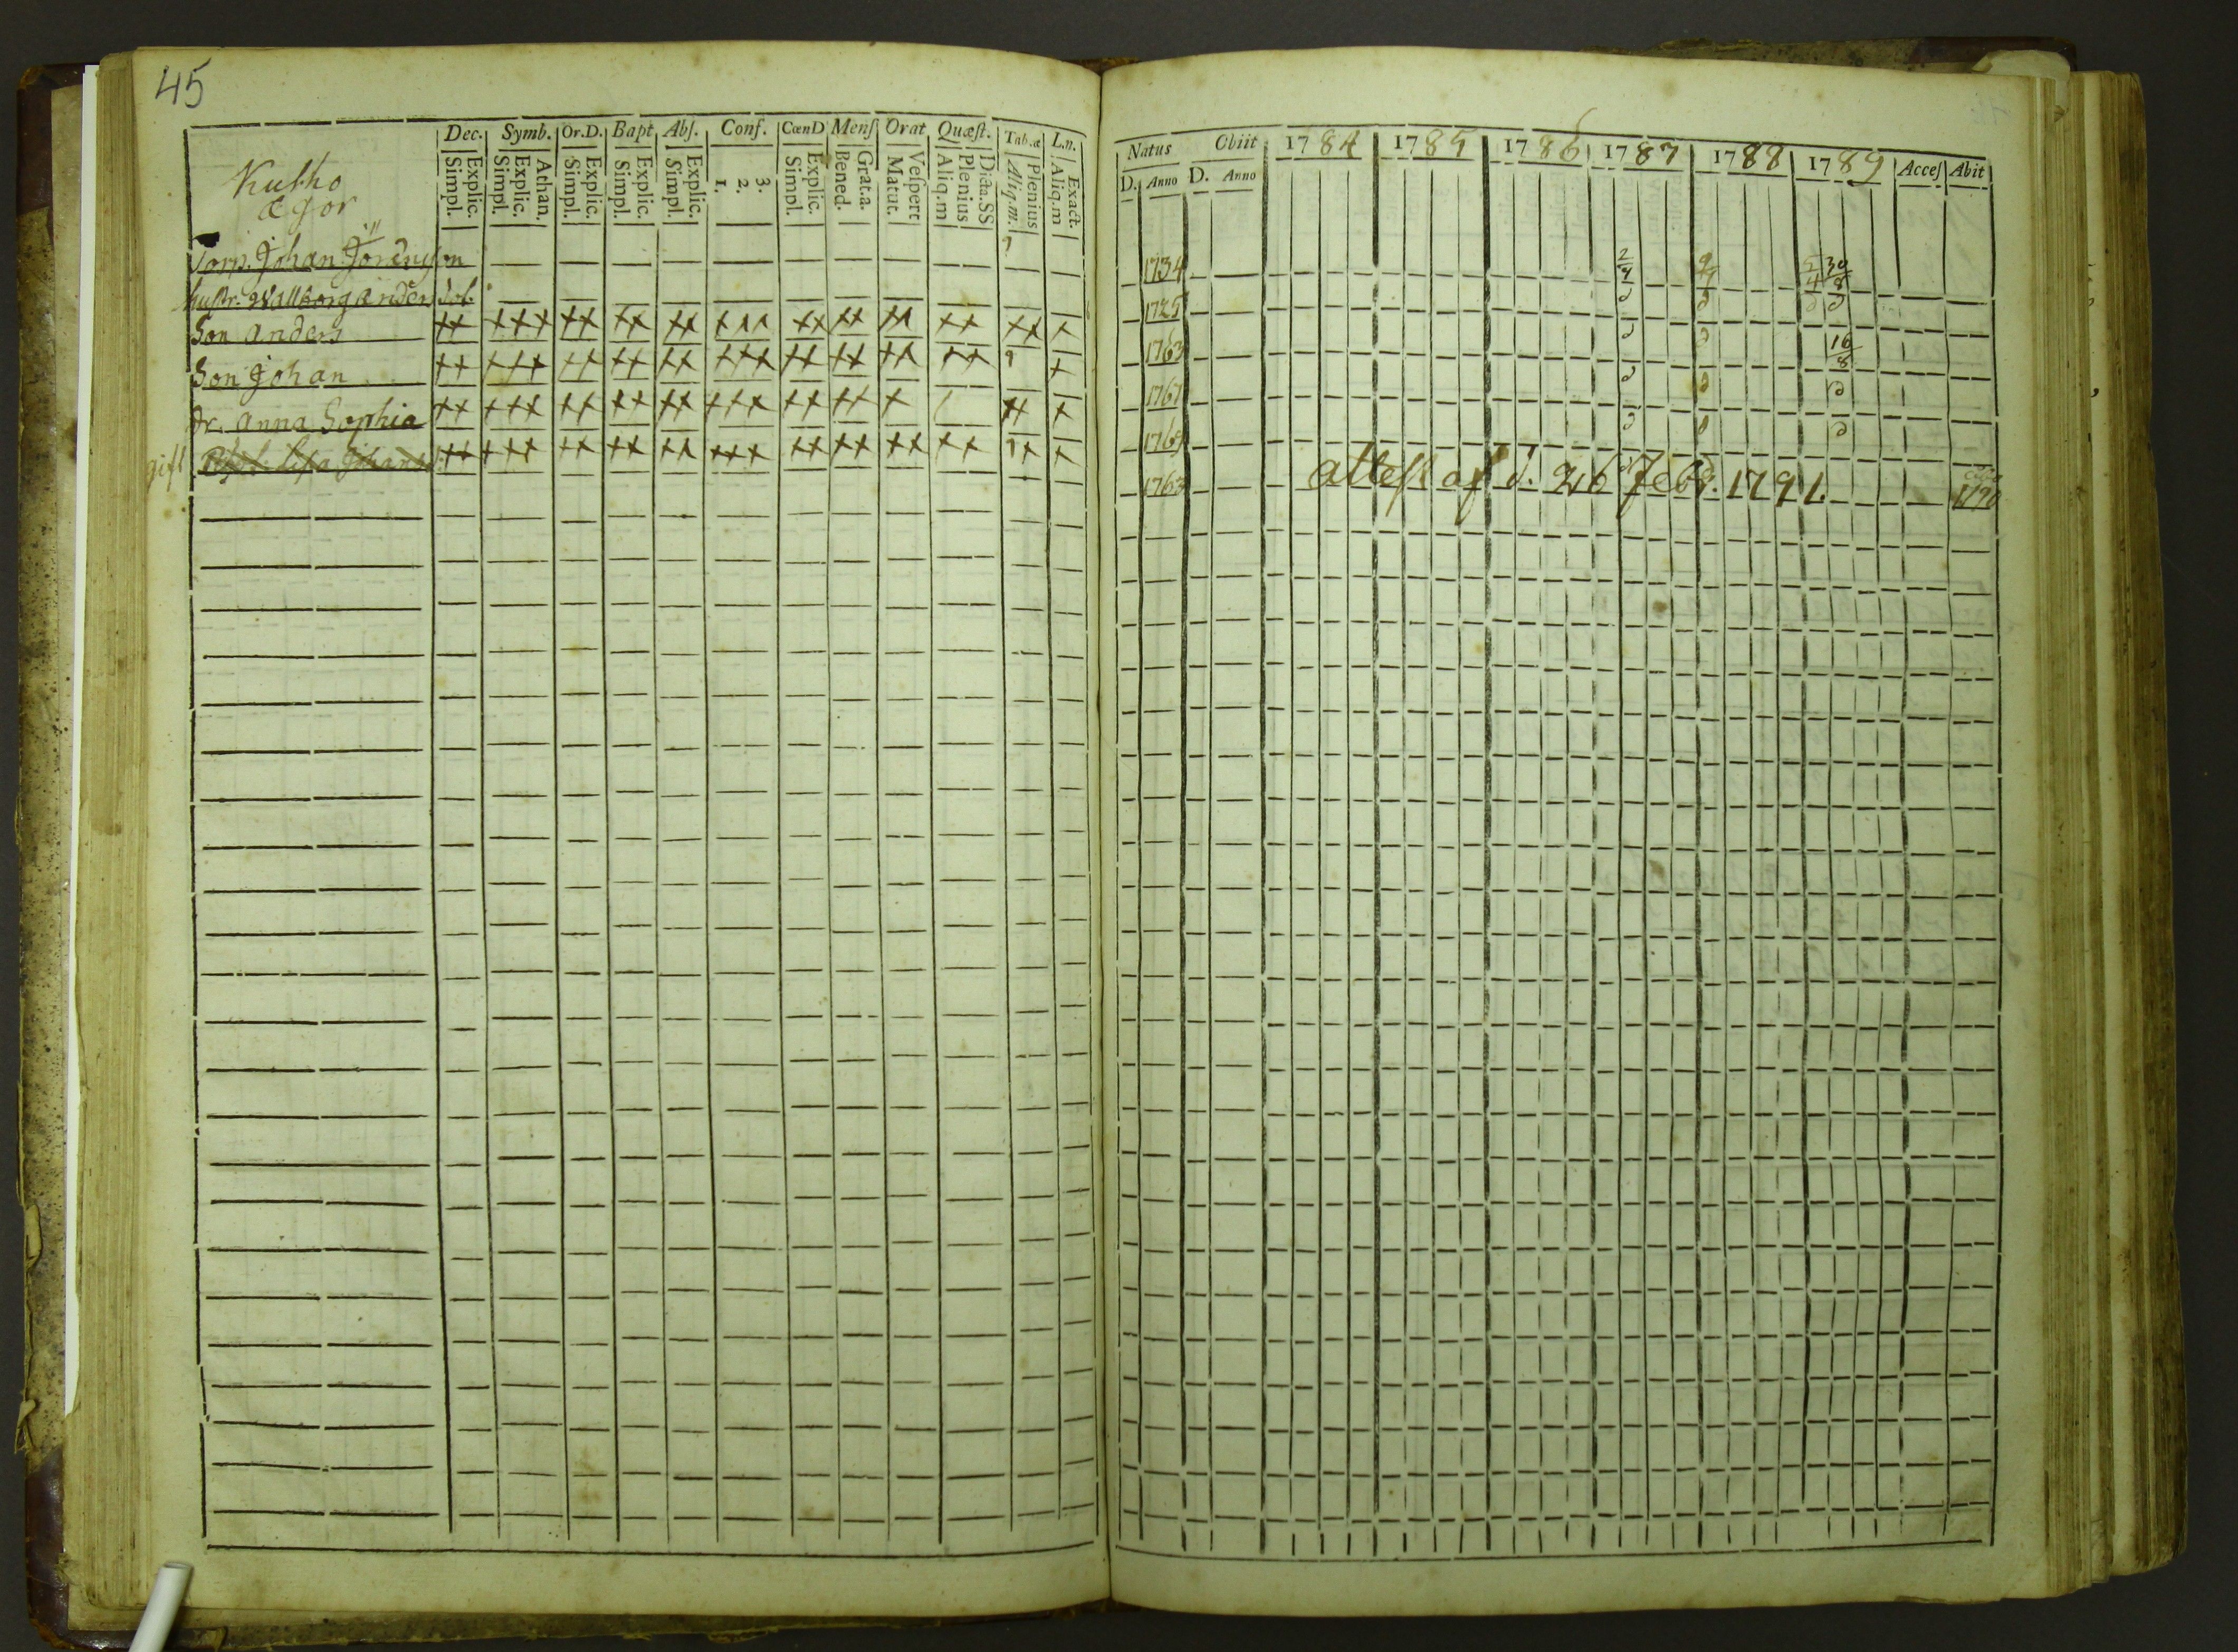 45
Dec. Symb. Or.D. Bapt Abſ. Conf. CœnD Menſ Orat Quæſt. Tab.æ L.n.
Explic. Simpl. Athan. Explic. Simpl. Explic. Simpl. Explic. Simpl. Explic. Simpl. 3. 2. 1. Explic. Simpl. Grat.a. Bened. Veſpert Matut. Dicta.SS Plenius Aliq.m Plenius Aliq.m. Exact. Aliq.m
Natus Obiit 1784 1785 1786 1787 1788 1789 Acceſ Abit
D. Anno D. Anno
Kutho
ægor
Torp. Johan Jörenſson 1734 2/4 30/8
huſtr. Wallborg anders dot. 1725
Son anders 1763 16/8
Son Johan 1767
dr. anna Sophia 1769
gift Liſa 1763 atteſt af d. 26 Febr. 1791. 1790